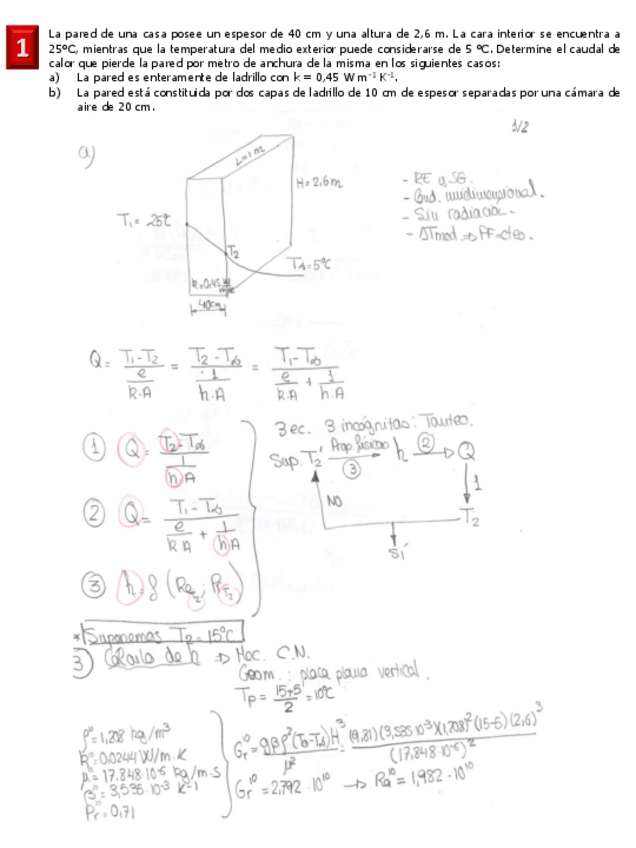 1
La pared de una casa posee un espesor de 40 cm y una altura de 2,6 m. La cara interior se encuentra a
25ºC, mientras que la temperatura del medio exterior puede considerarse de 5 ºC. Determine el caudal de
calor que pierde la pared por metro de anchura de la misma en los siguientes casos:
a) La pared es enteramente de ladrillo con k = 0,45 W m⁻¹ K⁻¹.
b) La pared está constituida por dos capas de ladrillo de 10 cm de espesor separadas por una cámara de
aire de 20 cm.
1/2
a)
L=1m
H=2,6m
- RE y SG.
- Cond. unidimensional.
- Sin radiación.
T₁ = 25ºC
T₂
- ΔTmod. => PF=cteo.
T∞=5ºC
k=0,45 W/
40cm
Q = (T₁-T₂)/(e/(k·A)) = (T₂-T∞)/(1/(h·A)) = (T₁-T∞)/(e/(k·A) + 1/(h·A))
3 ec. 3 incógnitas: Tanteo.
① Q = (T₂-T∞)/(1/(hA))
Sup. T₂' Prop. físicas ③ h ② Q
1
② Q = (T₁-T∞)/(e/(k·A) + 1/(hA))
NO
T₂
SÍ
③ h=f (
* Suponemos T₂ = 15ºC
3) Cálculo de h => Mec. C.N.
Geom.: placa plana vertical.
Tp = (15+5)/2 = 10ºC
ρ¹⁰=1,208 kg/m³
k¹⁰=0,0244 W/m·K
μ¹⁰=17,848·10⁻⁶ kg/m·s
β¹⁰=3,535·10⁻³ K⁻¹
Pr¹⁰=0,71
Gr¹⁰ = gβρ²(T₀-T∞)H³/μ² = (9,81)(3,535·10⁻³)(1,208)²(15-5)(2,6)³/(17,848·10⁻⁶)²
Gr¹⁰=2,792·10¹⁰ → Ra¹⁰=1,982·10¹⁰